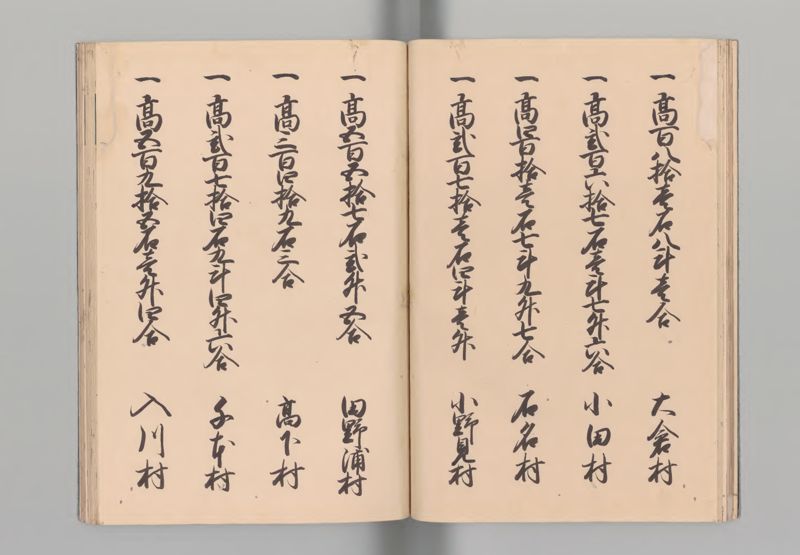 一 高百八拾壱石八斗壱合 大倉村
一 高弐百六拾七石壱斗七升六合 小田村
一 高四百拾壱石七斗九升七合 石名村
一 高弐百七拾壱石四斗壱升 小野見村
一 高五百五拾七石弐升五合 田野浦村
一 高三百四拾九石三合 高下村
一 高弐百七拾四石九斗四升六合 千本村
一 高五百九拾五石壱升四合 入川村